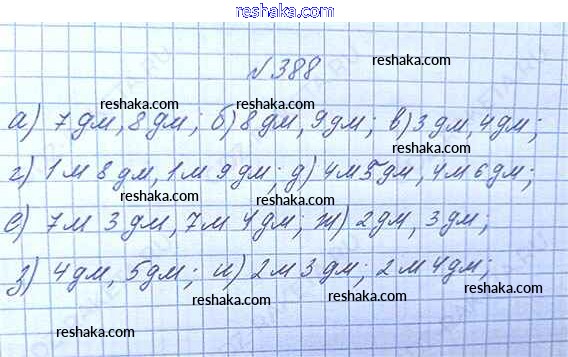 reshaka.com
№388
reshaka.com
reshaka.com
а) 7 дм, 8 дм; б) 8 дм, 9 дм; в) 3 дм, 4 дм;
reshaka.com reshaka.com reshaka.com
г) 1 м 8 дм, 1 м 9 дм; д) 4 м 5 дм, 4 м 6 дм;
reshaka.com reshaka.com reshaka.com
е) 7 м 3 дм, 7 м 4 дм; ж) 2 дм, 3 дм;
reshaka.com reshaka.com reshaka.com
з) 4 дм, 5 дм; и) 2 м 3 дм; 2 м 4 дм;
reshaka.com reshaka.com
reshaka.com
reshaka.com